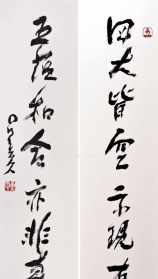 四大皆空示現有
五蘊和合亦非真